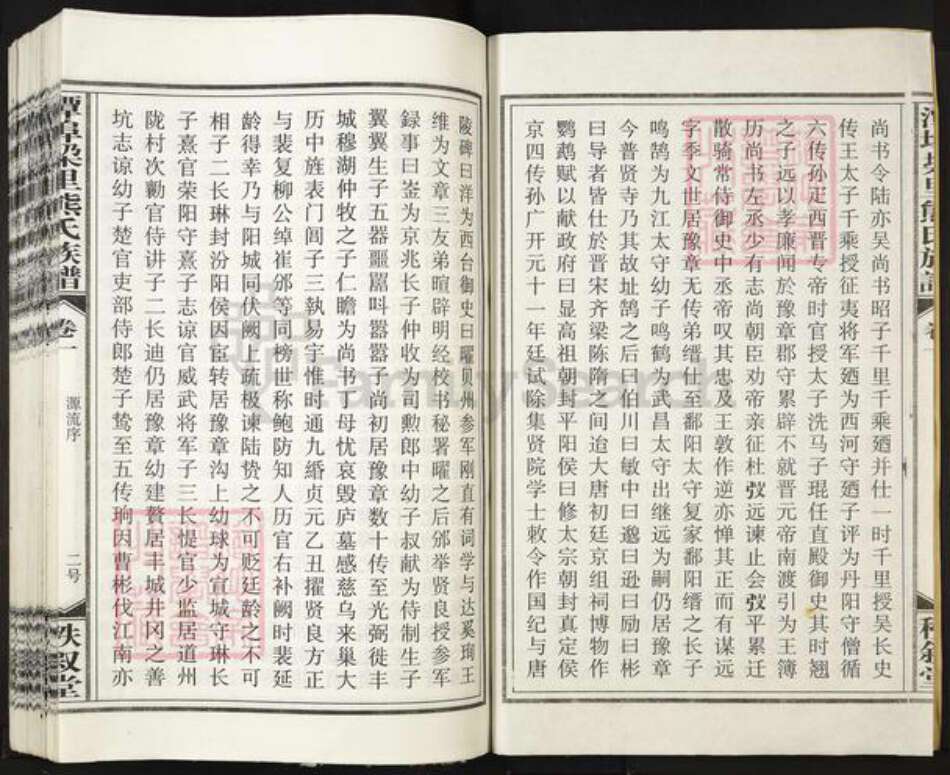 尚书令陆亦吴尚书昭子千里千乘廼并仕一时千里授吴长史
传王太子千乘授征夷将军廼为西河守廼子评为丹阳守僧循
六传孙疋西晋专帝时官授太子洗马子琨任直殿御史其时翘
之子远以孝廉闻於豫章郡守累辟不就晋元帝南渡引为主簿
历尚书左丞少有志尚朝臣劝帝亲征杜弢远谏止会弢平累迁
散骑常侍御史中丞帝叹其忠及王敦作逆亦惮其正而有谋远
字季文世居豫章无传弟缙仕至鄱阳太守复家鄱阳缙之长子
鸣鹄为九江太守幼子鸣鹤为武昌太守出继远为嗣仍居豫章
今普贤寺乃其故址鹄之后曰伯川曰敏中曰邈曰逊曰励曰彬
曰导者皆仕於晋宋齐梁陈隋之间迨大唐初廷京组祠博物作
鹦鹉赋以献政府曰显高祖朝封平阳侯曰修太宗朝封真定侯
京四传孙广开元十一年廷试除集贤院学士敕令作国纪与唐
陵碑曰洋为西台御史曰曜贝州参军刚直有词学与达奚珣王
维为文章三友弟暄辟明经校书秘署曜之后颁举贤良授参军
録事曰崟为京兆长子仲收为司勲郎中幼子叔献为侍制生子
翼翼生子五器噩嚚呌嚣嚣子尚初居豫章数十传至光弼徙丰
城穆湖仲牧之子仁瞻为尚书丁母忧哀毁庐墓感慈乌来巢大
历中旌表门闾子三執易宇惟时通九緍贞元乙丑擢贤良方正
与裴复柳公绰崔邠等同榜世称鲍防知人历官右补阙时裴延
龄得幸乃与阳城同伏阙上疏极谏陆贽之不可贬廷龄之不可
相子二长琳封汾阳侯因宦转居豫章沟上幼球为宣城守琳长
子熹官荣阳守熹子志谅官威武将军子三长惿官少监居道州
陇村次勸官侍讲子二长迪仍居豫章幼建赘居丰城井冈之善
坑志谅幼子楚官吏部侍郎楚子鸷至五传珦因曹彬伐江南亦
谭埠梁里熊氏族谱
卷一
源流序
二号
秩叙堂